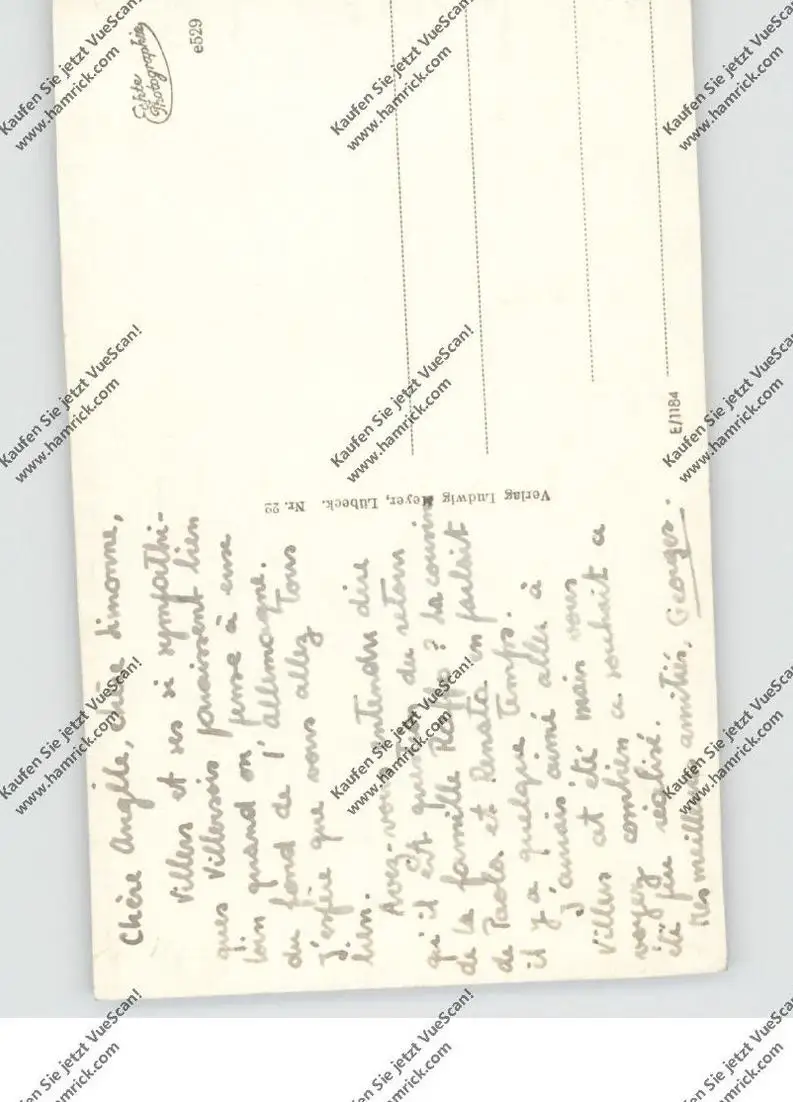 Chère Angèle, chère Simonne,
Villers et ses si sympathi-
ques Villersois paraissent bien
loin quand on pense à eux
du fond de l'allemagne.
J'espère que vous allez tous
bien.
Avez-vous entendu dire
qu'il est question du retour
de la famille ? La cousine
de Paola et Renata en parlait
il y a quelque temps.
J'aurais aimé aller à
Villers cet été mais vous
voyez combien ce souhait a
été peu réalisé.
Mes meilleures amitiés, Georges.
Verlag Ludwig Meyer, Lübeck. Nr. 22
Echte
Photographie
e529
E/1184
Kaufen Sie jetzt VueScan!
www.hamrick.com
Kaufen Sie jetzt VueScan!
www.hamrick.com
Kaufen Sie jetzt VueScan!
www.hamrick.com
Kaufen Sie jetzt VueScan!
www.hamrick.com
Kaufen Sie jetzt VueScan!
www.hamrick.com
Kaufen Sie jetzt VueScan!
www.hamrick.com
Kaufen Sie jetzt VueScan!
www.hamrick.com
Kaufen Sie jetzt VueScan!
www.hamrick.com
Kaufen Sie jetzt VueScan!
www.hamrick.com